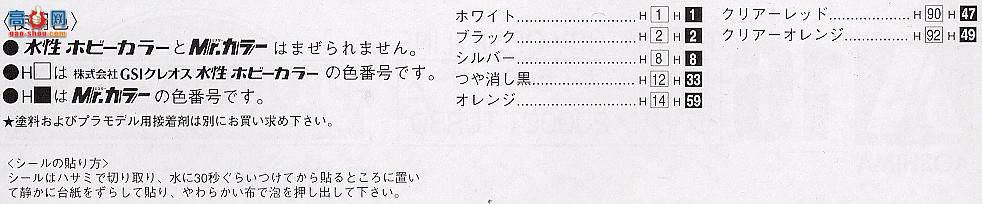 高山网
www.gao-shan.com
●水性ホビーカラーとMr.カラーはまぜられません。
●H□は 株式会社GSIクレオス 水性ホビーカラーの色番号です。
●H■はMr.カラーの色番号です。
★塗料およびプラモデル用接着剤は別にお買い求め下さい。
<シールの貼り方>
シールはハサミで切り取り、水に30秒ぐらいつけてから貼るところに置い
て静かに台紙をずらして貼り、やわらかい布で泡を押し出して下さい。
ホワイト……………… H 1 H 1
ブラック……………… H 2 H 2
シルバー……………… H 8 H 8
つや消し黒…………… H 12 H 33
オレンジ……………… H 14 H 59
クリアーレッド………… H 90 H 47
クリアーオレンジ……… H 92 H 49